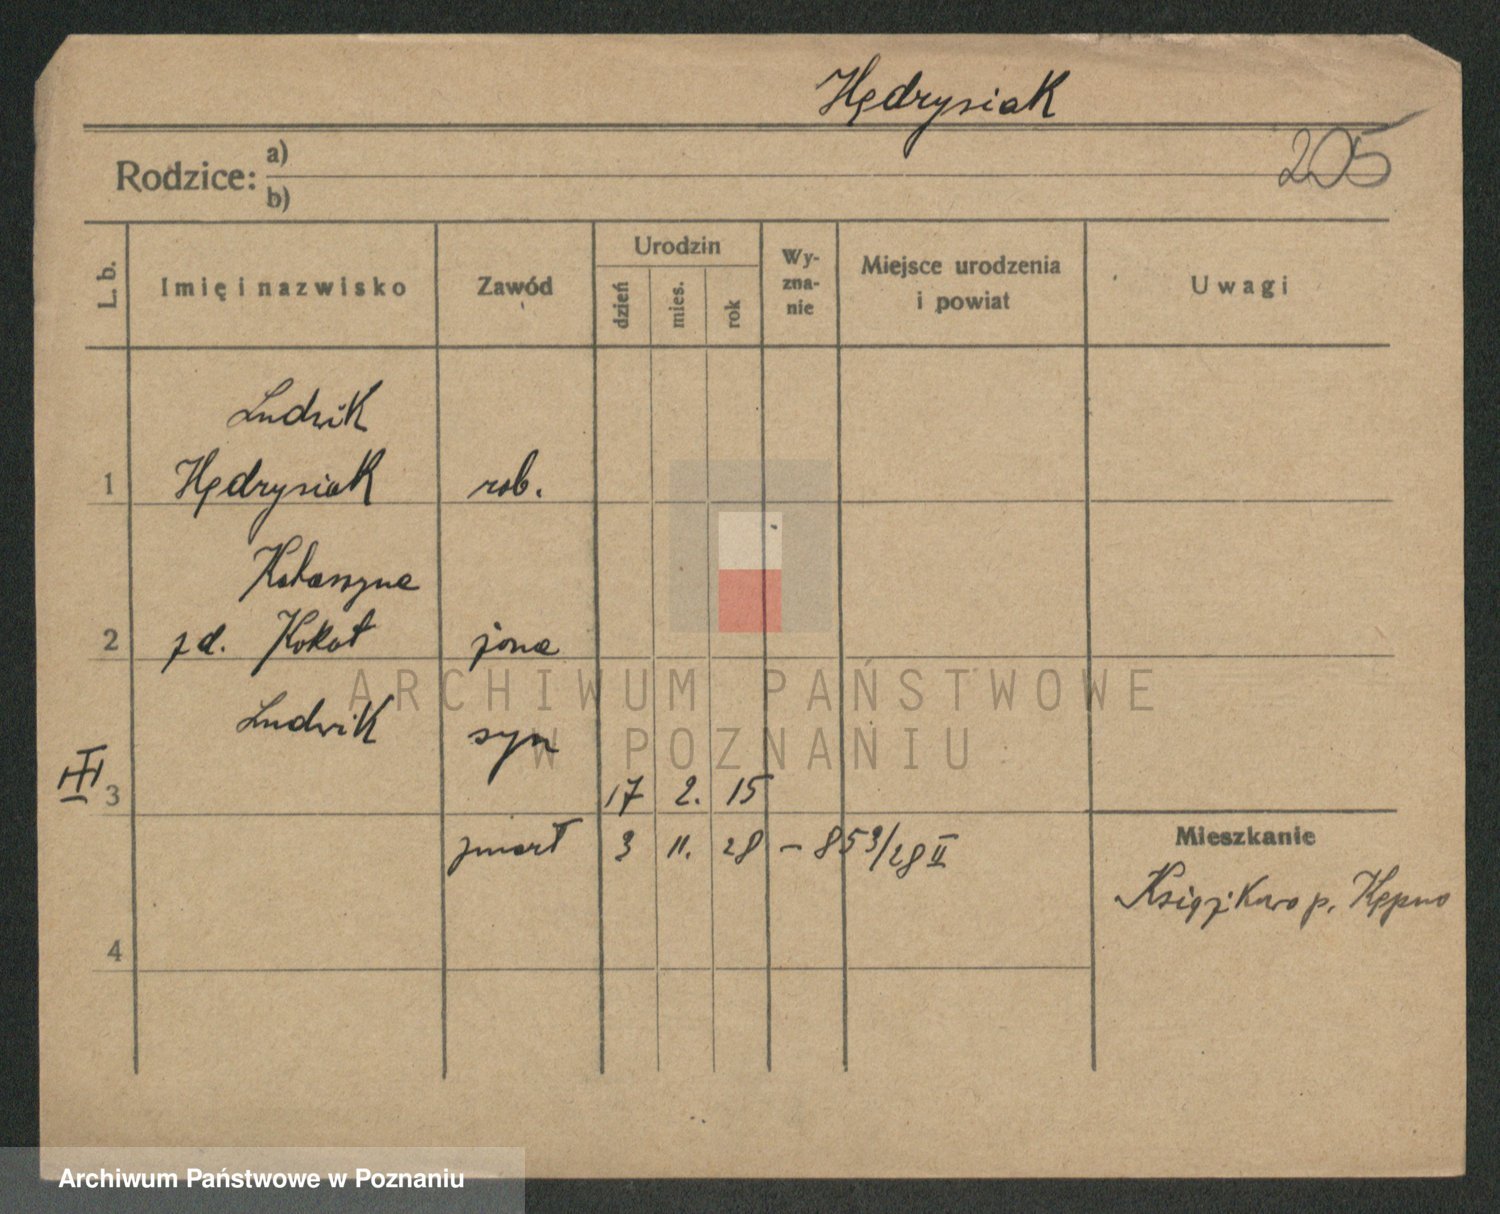 Hędrysiak
205
Rodzice: a)
b)
L. b. Imię i nazwisko Zawód Urodzin dzień mies. rok Wy-zna-nie Miejsce urodzenia i powiat Uwagi
Ludwik
1 Hędrysiak rob.
Katarzyna
2 zd. Kokot żona
Ludwik syn
III 3 17 2. 15
zmarł 3 11. 28 - 853/28 II
Mieszkanie
Książ. Kawo p. Kępno
4
ARCHIWUM PAŃSTWOWE
W POZNANIU
Archiwum Państwowe w Poznaniu